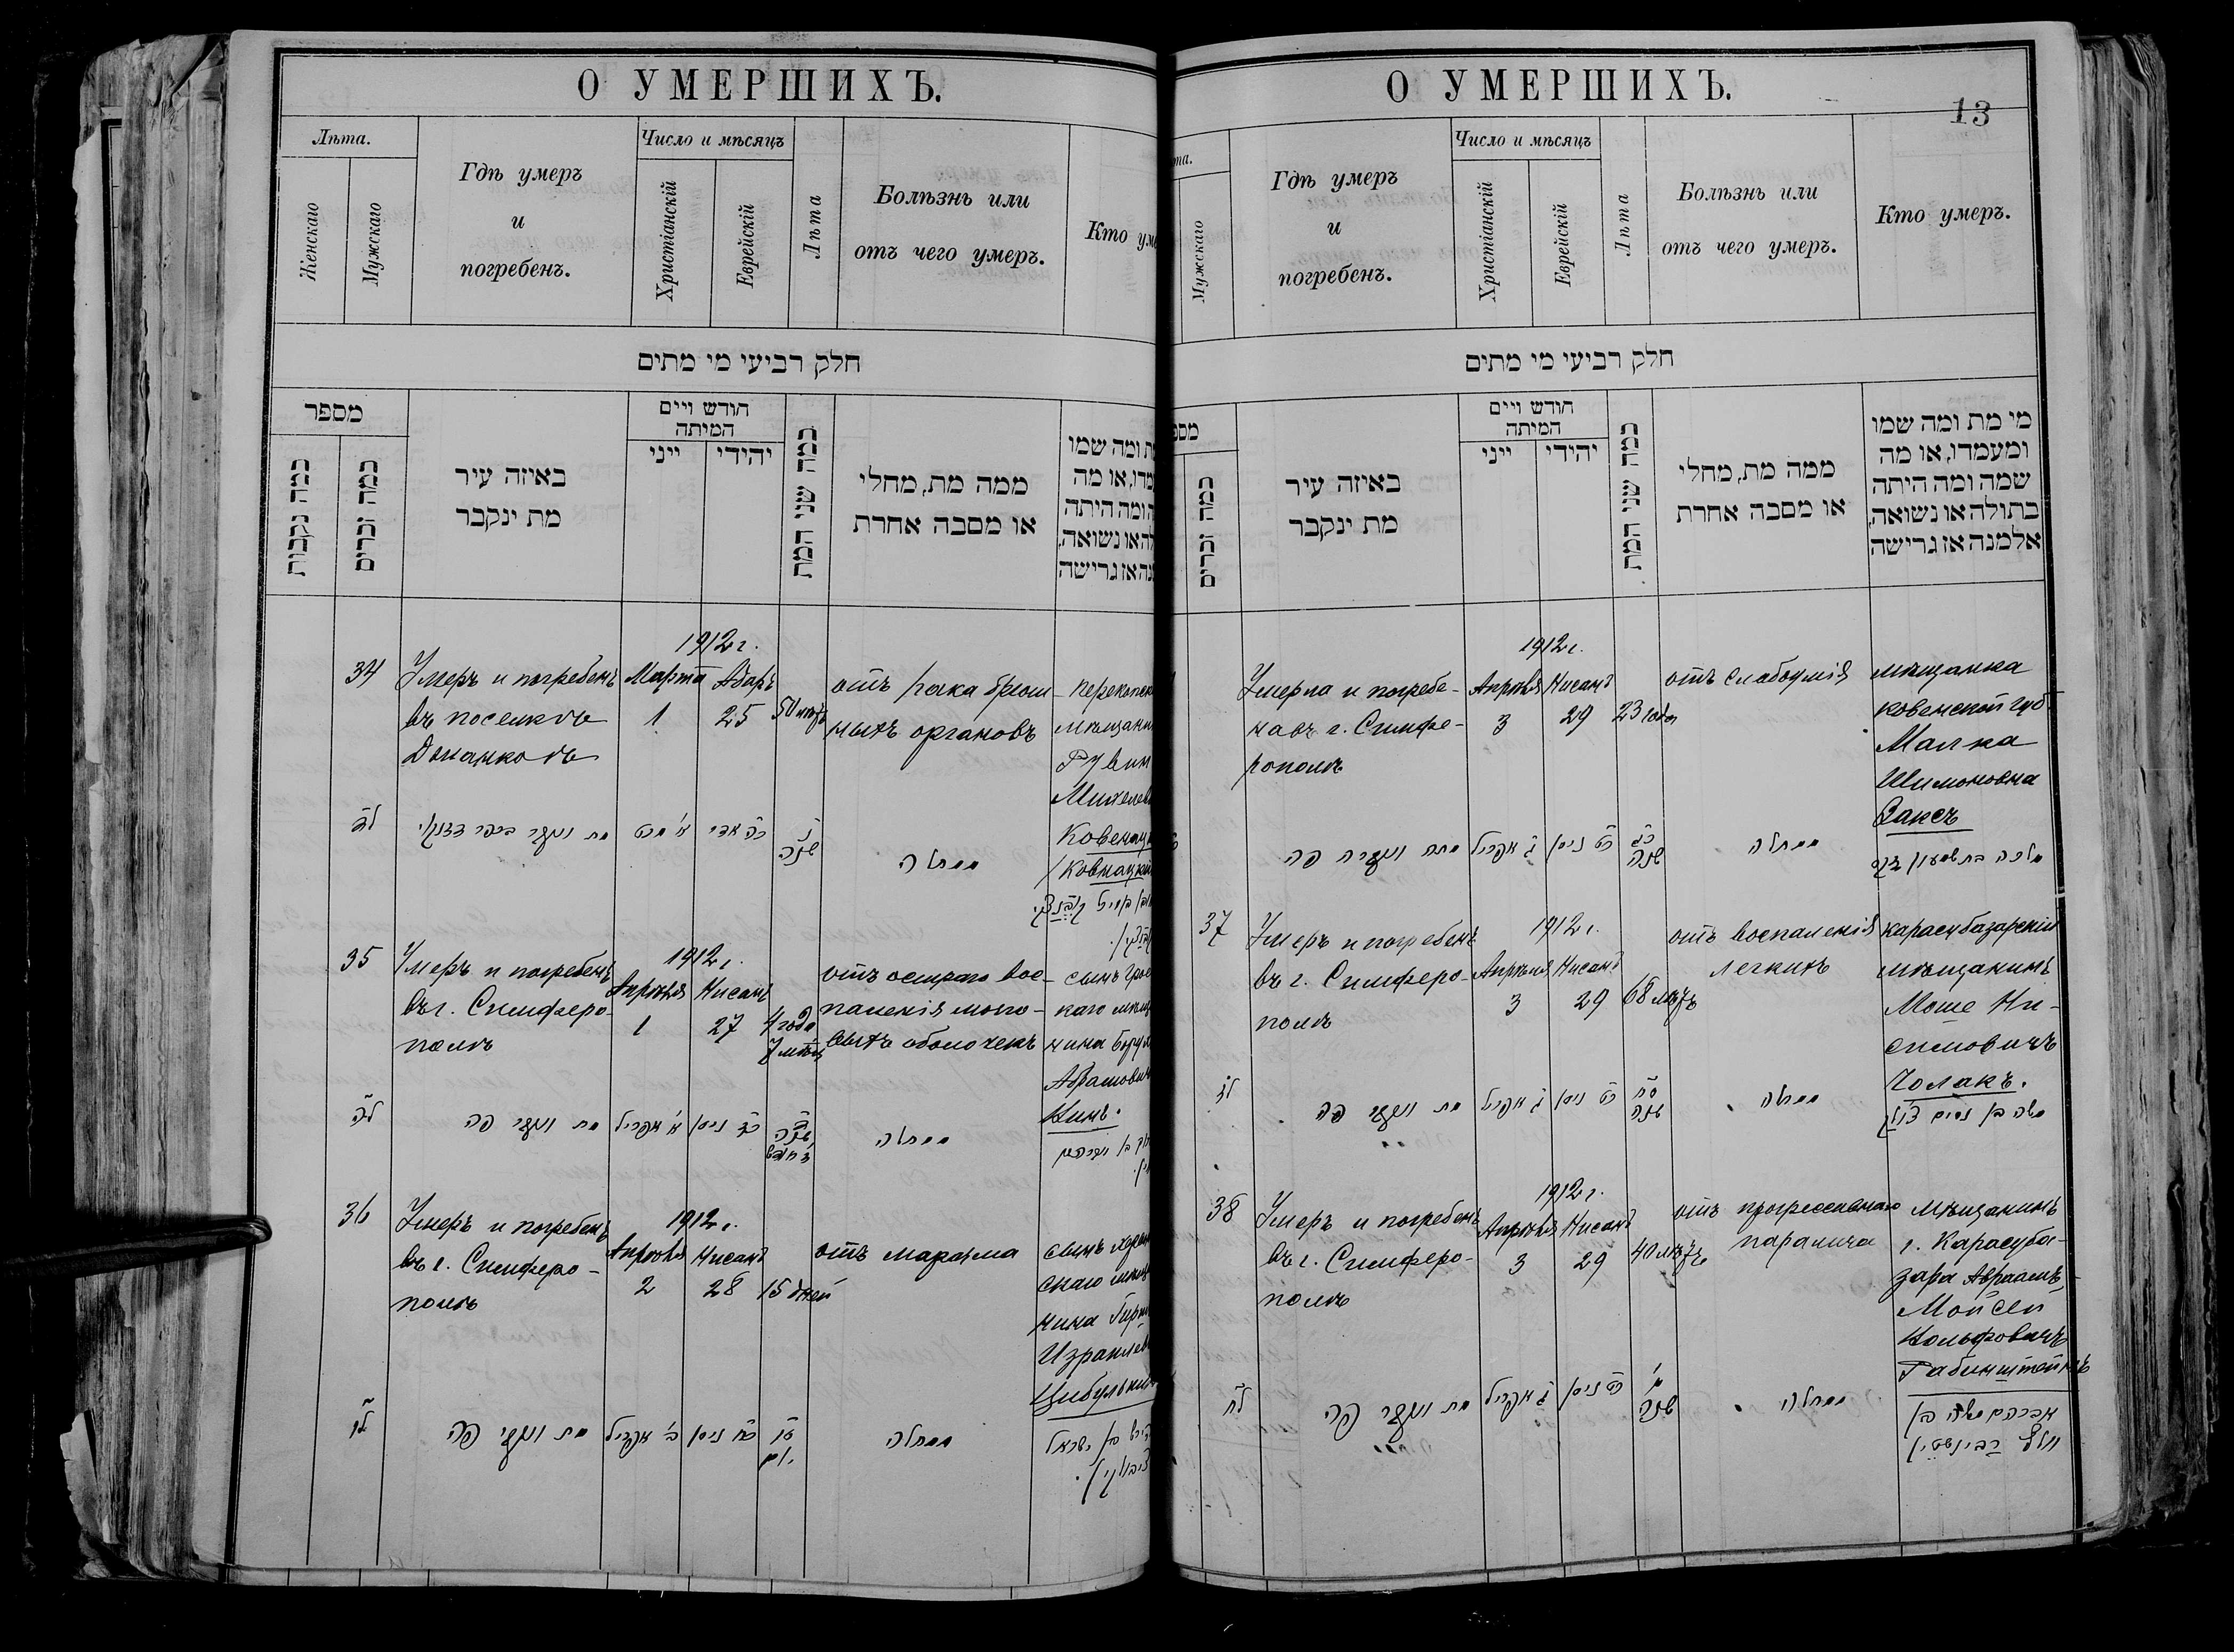 О УМЕРШИХЪ.
Лѣта.
Женскаго
Мужскаго
Гдѣ умеръ
и
погребенъ.
Число и мѣсяцъ
Христіанскій
Еврейскій
Лѣта
Болѣзнь или
отъ чего умеръ.
Кто уме
חלק רביעי מי מתים
מספר
כמה נקבות
כמה זכרים
באיזה עיר
מת ונקבר
חודש ויים
המיתה
ייני
יהידי
כמה שני המת
ממה מת, מחלי
או מסבה אחרת
ת ומה שמו
מדו, או מה
ה ומה היתה
לה או נשואה,
נה אז גרישה
34
Умеръ и погребенъ
въ поселкѣ
Джанкоѣ
1912 г.
Марта Адаръ
1 25
50 лѣтъ
отъ рака брюш-
ныхъ органовъ
перекопск
мѣщани
Рувин
Михелев
Ковенацк
/Ковнацкій
לד
א׳ מרט
נ׳
שנה
ממחלה
35
Умеръ и погребенъ
въ г. Симферо-
полѣ
1912 г.
Апрѣля Нисанъ
1 27
4 года
7 мѣсяц
отъ остраго вос-
паленія мозго-
выхъ оболочекъ
сынъ
каго мѣщ
нина Борух
Абрамович
Кинъ.
לה
מת ונקבר פה
א׳ אפריל
כז ניסן
ממחלה
36
Умеръ и погребенъ
въ г. Симферо-
полѣ
1912 г.
Апрѣля Нисанъ
2 28
15 дней
отъ маразма
сынъ
скаго мѣщ
нина Гирш
Израилев
Цибулькин
לו
מת ונקבר פה
ב׳ אפריל
כח ניסן
טו
יום
ממחלה
הירש בן ישראל
ציבולקין.
О УМЕРШИХЪ.
13
та.
Мужскаго
Гдѣ умеръ
и
погребенъ.
Число и мѣсяцъ
Христіанскій
Еврейскій
Лѣта
Болѣзнь или
отъ чего умеръ.
Кто умеръ.
חלק רביעי מי מתים
מספ
כמה זכרים
באיזה עיר
מת ינקבר
חודש ויים
המיתה
ייני
יהידי
כמה שני המת
ממה מת, מחלי
או מסבה אחרת
מי מת ומה שמו
ומעמדו, או מה
שמה ומה היתה
בתולה או נשואה,
אלמנה אז גרישה
Умерла и погребе-
на въ г. Симфе-
рополѣ
1912 г.
Апрѣля Нисанъ
3 29
23 года
отъ слабоумія
мѣщанка
ковенской губ.
Малка
Шимоновна
Заксъ
מתה ונקברה פה
ג׳ אפריל
כט ניסן
כג
שנה
ממחלה
מלכה בת שמעון זקס
37
Умеръ и погребенъ
въ г. Симферо-
полѣ
1912 г.
Апрѣля Нисанъ
3 29
68 лѣтъ
отъ воспаленія
легкихъ
карасубазарскій
мѣщанинъ
Моше Ни-
симовичъ
Чолакъ.
לז
מת ונקבר פה
ג׳ אפריל
כט ניסן
סח
שנה
ממחלה
משה בן נסים צולק
38
Умеръ и погребенъ
въ г. Симферо-
полѣ
1912 г.
Апрѣля Нисанъ
3 29
40 лѣтъ
отъ прогрессивнаго
паралича
мѣщанинъ
г. Карасуба-
зара Авраамъ-
Мойсей
Вольфовичъ
Рабинштейнъ
לח
מת ונקבר פה
ג׳ אפריל
כט ניסן
מ׳
שנה
ממחלה
אברהם משה בן
וולף רבינשטיין